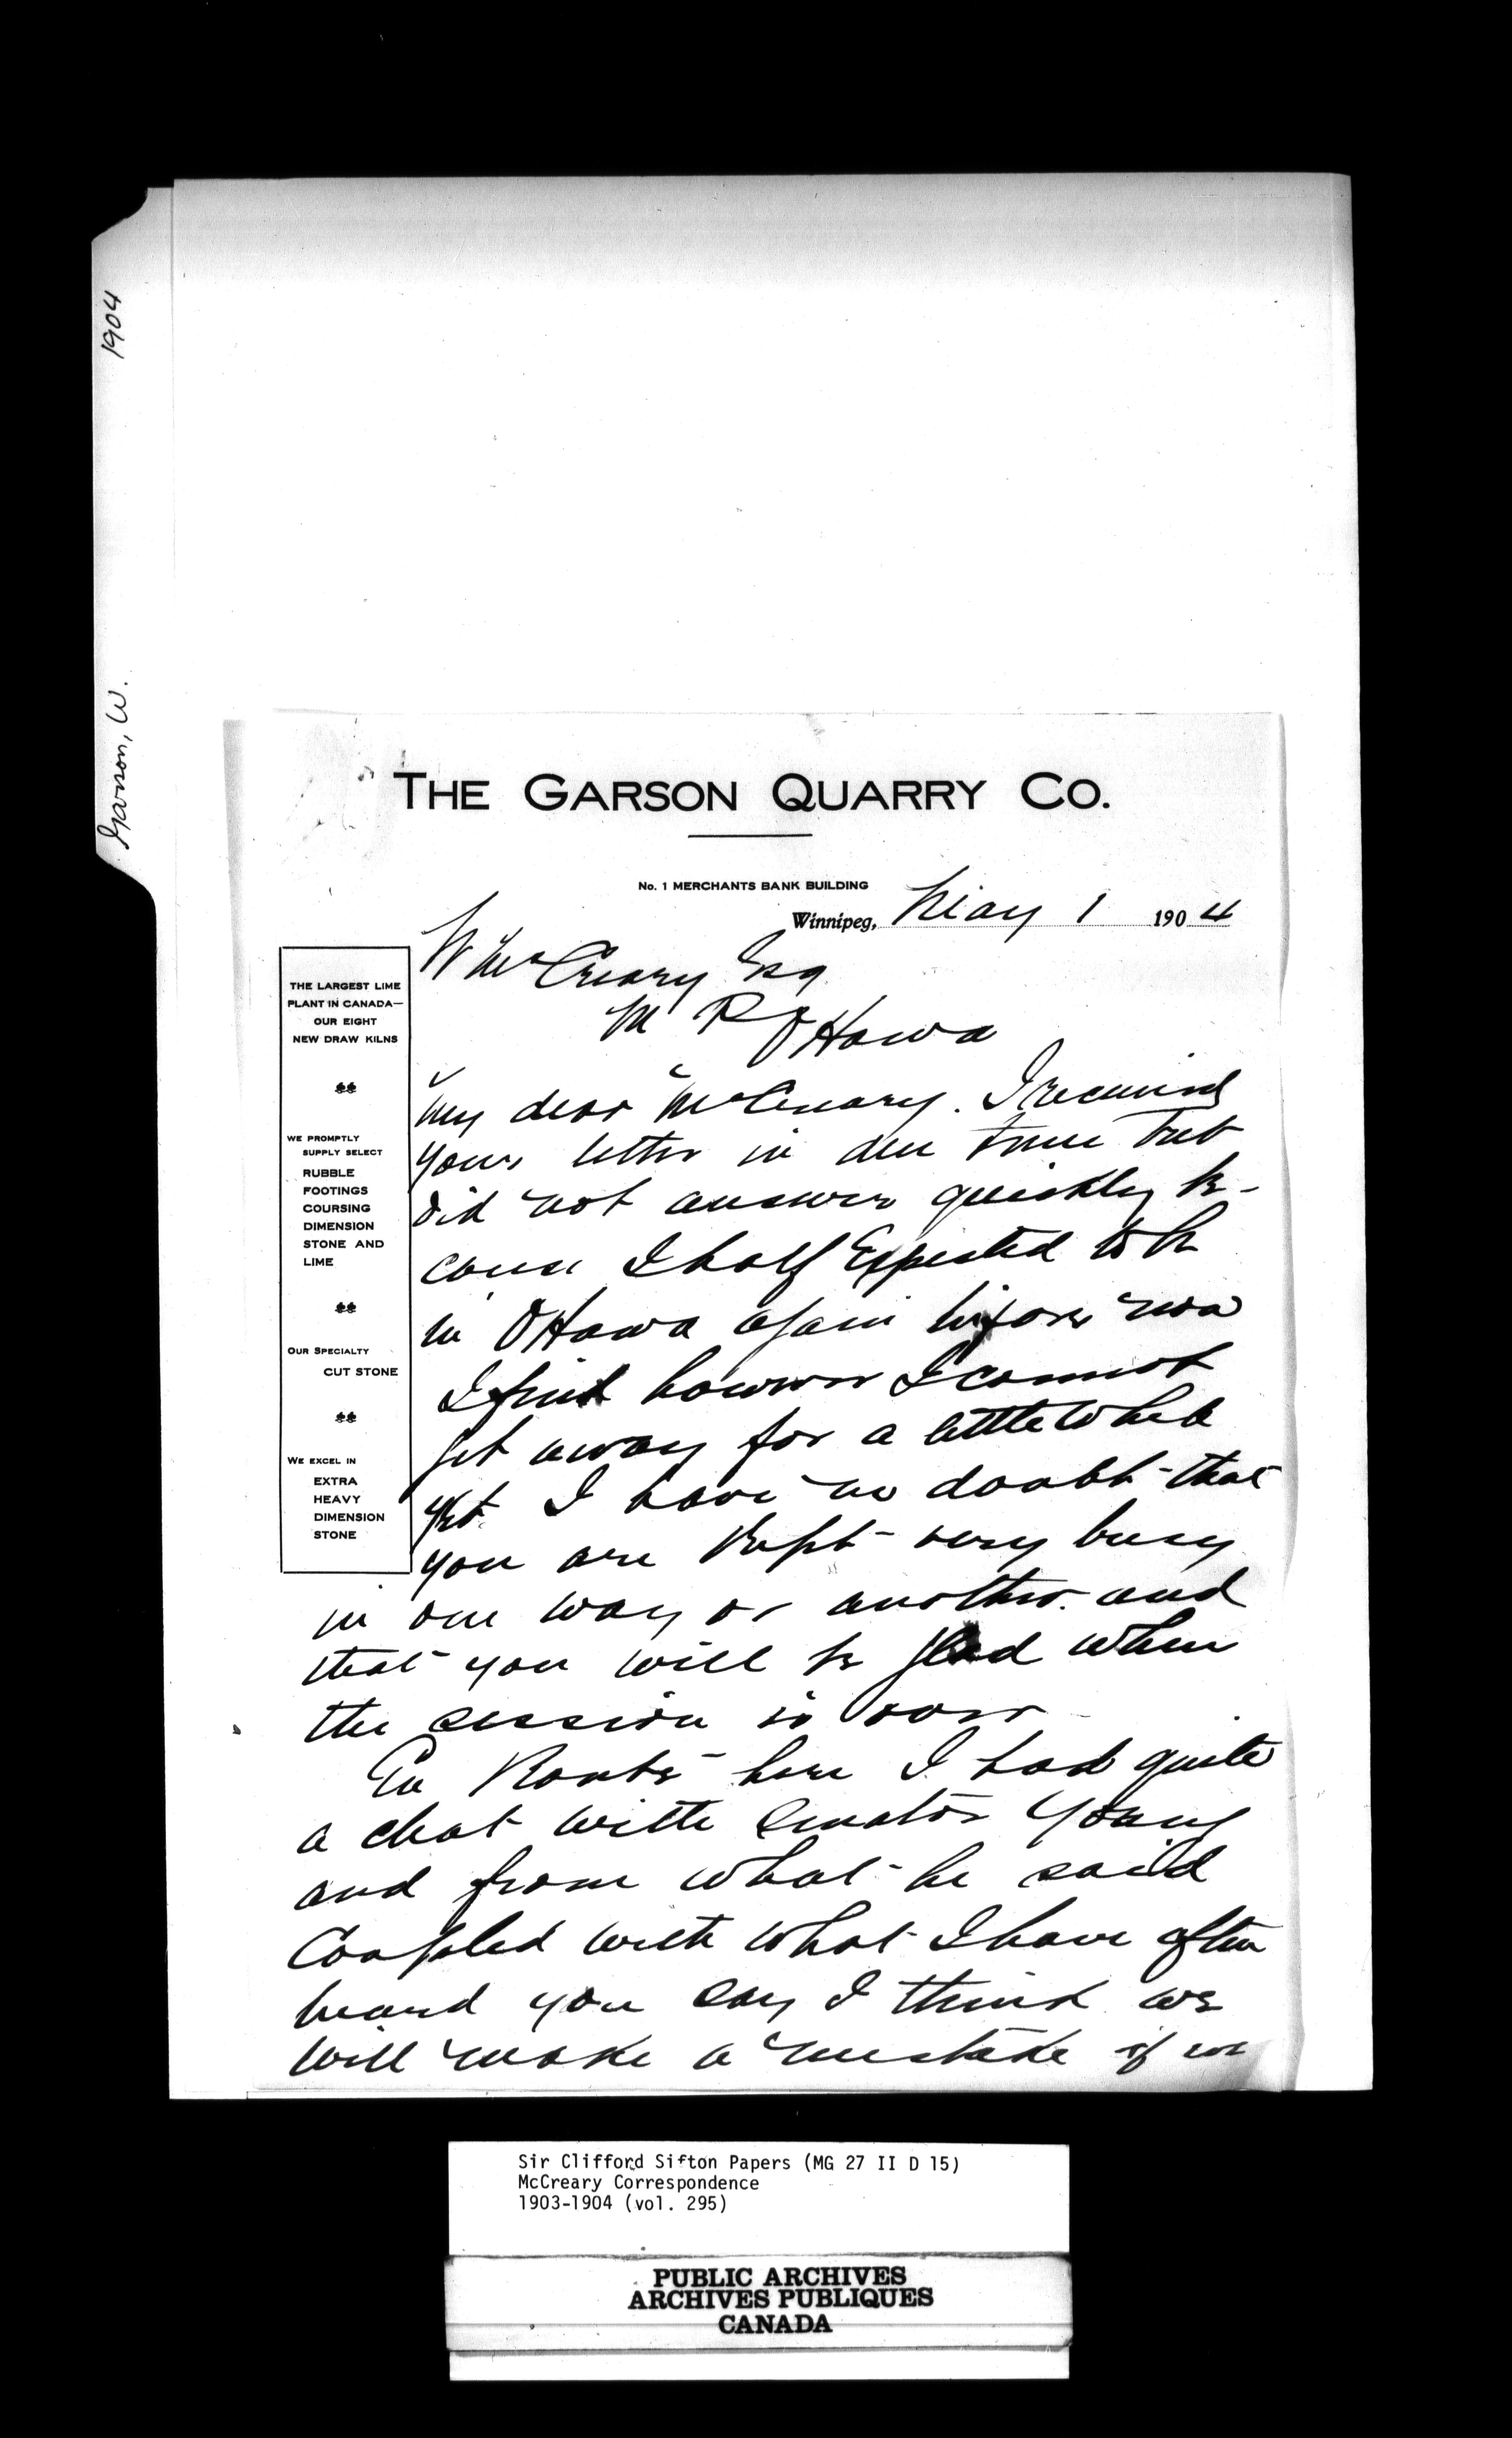 1904
Garson, W.
THE GARSON QUARRY CO.
No. 1 MERCHANTS BANK BUILDING
Winnipeg, May 1 1904
THE LARGEST LIME
PLANT IN CANADA—
OUR EIGHT
NEW DRAW KILNS
WE PROMPTLY
SUPPLY SELECT
RUBBLE
FOOTINGS
COURSING
DIMENSION
STONE AND
LIME
OUR SPECIALTY
CUT STONE
WE EXCEL IN
EXTRA
HEAVY
DIMENSION
STONE
W McCreary Esq
M P Ottawa
My dear McCreary. I received
your letter in due time but
did not answer quickly be-
cause I half Expected to be
in Ottawa again before now
I find however I cannot
get away for a little while
yet I have no doubt that
you are kept very busy
in one way or another and
that you will be glad when
the session is over
En Route here I had quite
a chat with Senator Young
and from what he said
Coupled with what I have often
heard you say I think we
will make a mistake if we
Sir Clifford Sifton Papers (MG 27 II D 15)
McCreary Correspondence
1903-1904 (vol. 295)
PUBLIC ARCHIVES
ARCHIVES PUBLIQUES
CANADA